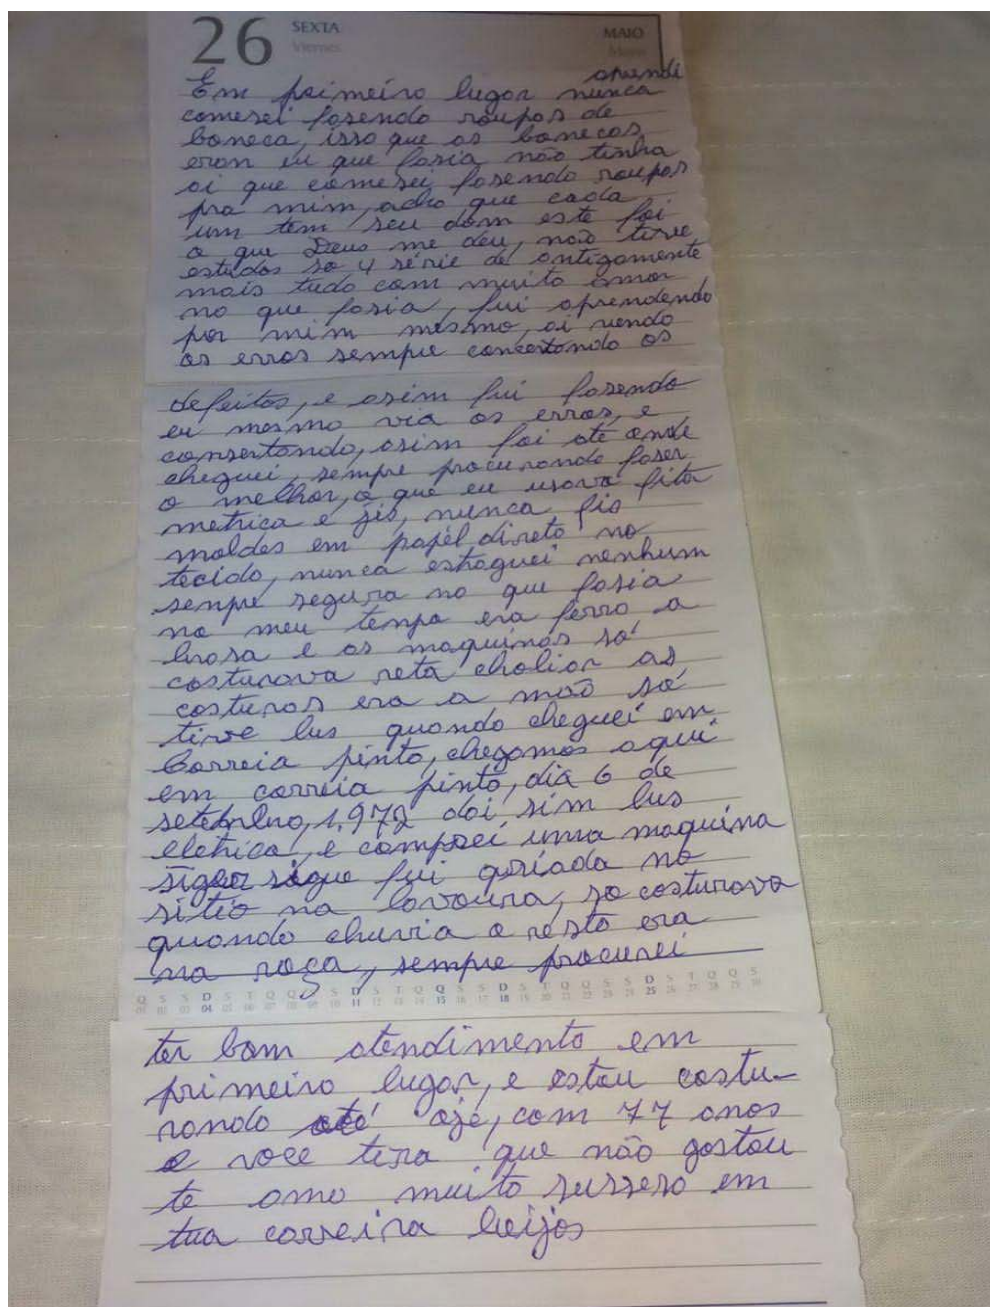 26 SEXTA MAIO
Viernes Mayo
aprendi
Em primeiro lugar nunca
comesei fasendo roupas de
boneca, isso que as bonecas
eram eu que fasia não tinha
ai que comesei fasendo roupas
pra mim, acho que cada
um tem seu dom este foi
o que Deus me deu, não tive
estudos so 4 série de antigamente
mais tudo com muito amor
no que fasia, fui aprendendo
por mim mesmo, ai vendo
os erros sempre concertando os
defeitos, e asim fui fasendo
eu mesmo via os erros, e
consertando, asim foi até onde
cheguei, sempre procurando faser
o melhor, o que eu usava fita
metrica e jis, nunca fis
moldes em papél direto no
tecido, nunca estraguei nenhum
sempre segura no que fasia
no meu tempo era ferro a
brasa e as maquinas só
costurava reta choliar as
costuras era a mão só
tive lus quando cheguei em
Correia pinto, chegamos aqui
em correia pinto, dia 6 de
setembro, 1.972 dai sim lus
eletrica, e comprei uma maquina
sigue fui criada no
sitio na lavoura, so costurava
quando chuvia o resto era
na roça, sempre procurei
Q S S D S T Q Q S S D S T Q Q S S D S T Q Q S S D S T Q Q S
01 02 03 04 05 06 07 08 09 10 11 12 13 14 15 16 17 18 19 20 21 22 23 24 25 26 27 28 29 30
ter bom atendimento em
primeiro lugar, e estou costu-
rando até oje, com 77 anos
e voce tira que não gostou
te amo muito susseso em
tua correira beijos